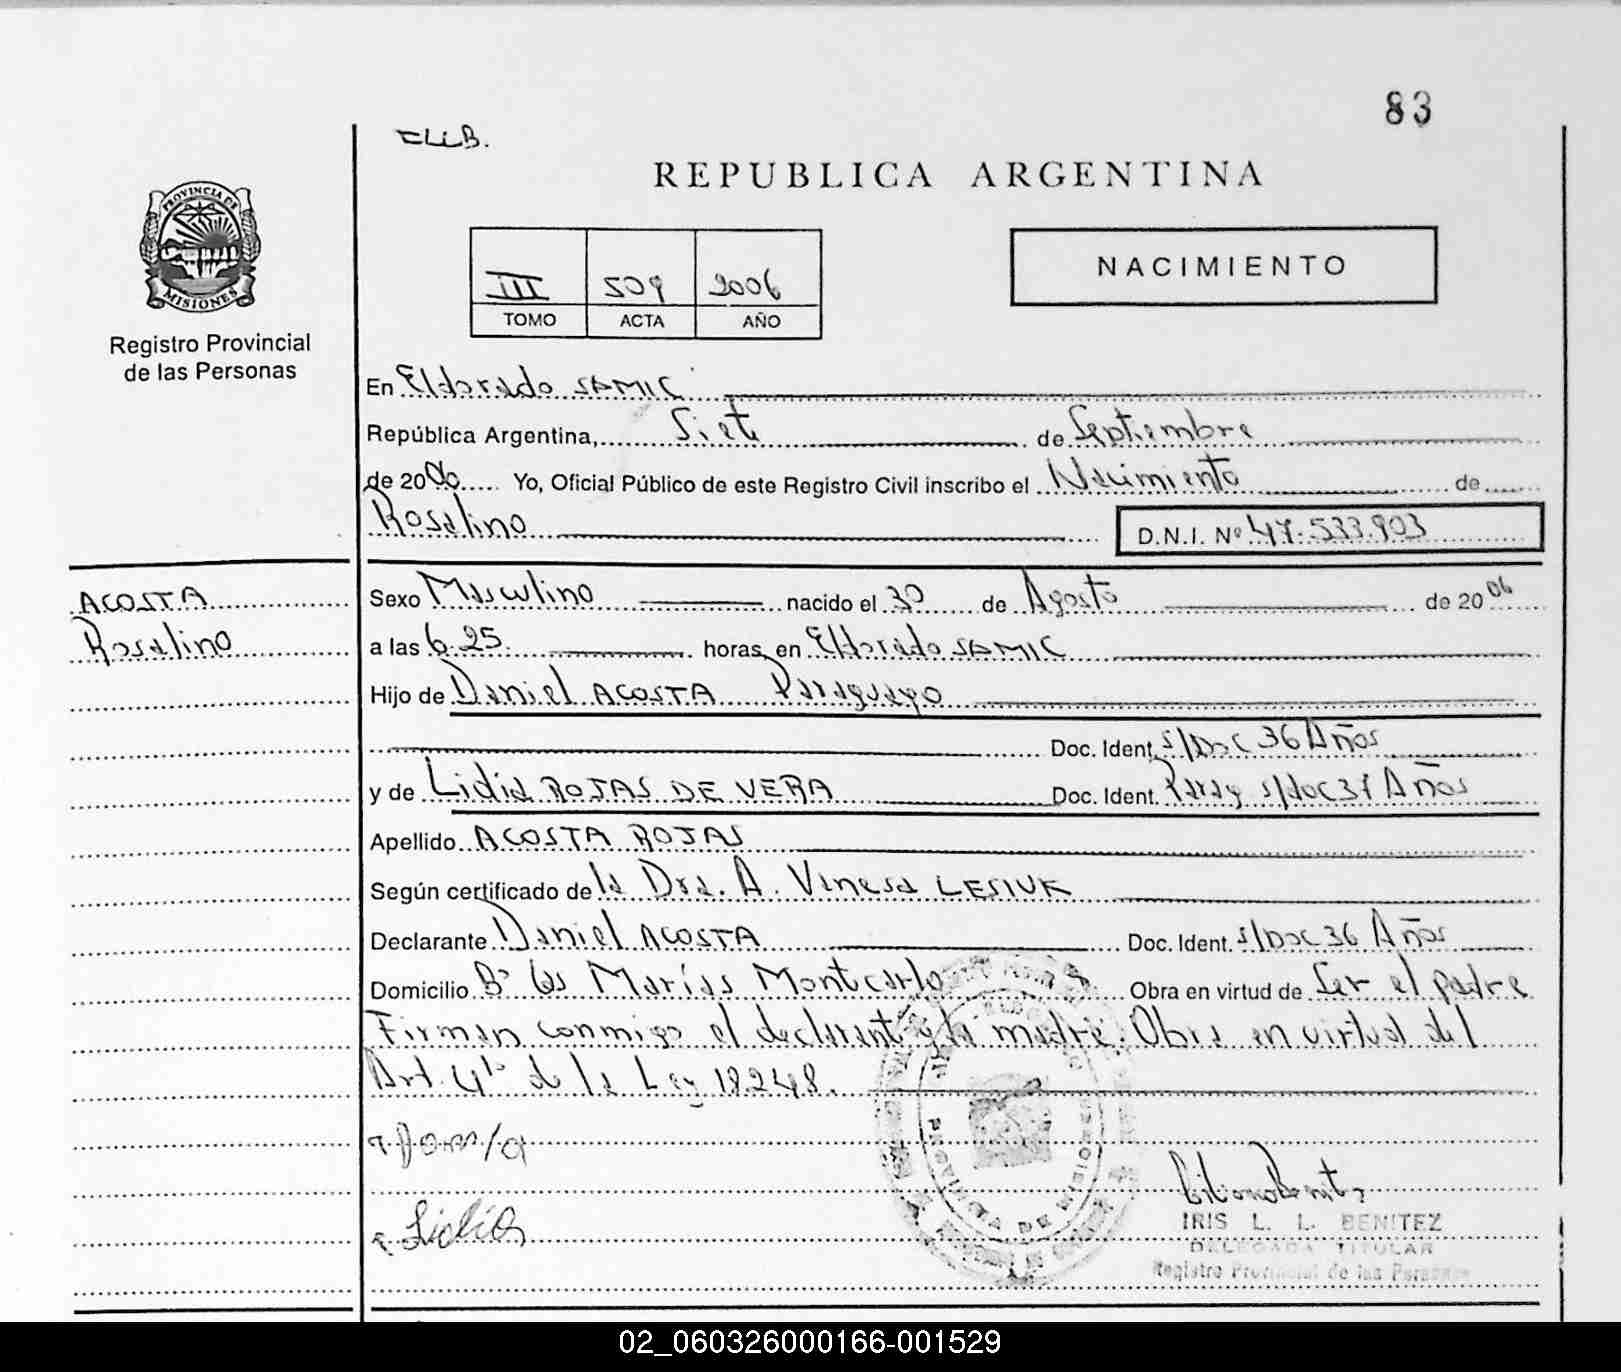 83
REPUBLICA ARGENTINA
PROVINCIA DE
MISIONES
Registro Provincial
de las Personas
III 509 2006
TOMO ACTA AÑO
NACIMIENTO
En Eldorado SAMIC
República Argentina, Siete de Septiembre
de 2006 Yo, Oficial Público de este Registro Civil inscribo el Nacimiento de
Rosalino D.N.I. Nº 47.533.903
ACOSTA
Rosalino
Sexo Masculino nacido el 30 de Agosto de 2006
a las 6.25 horas, en Eldorado SAMIC
Hijo de Daniel ACOSTA Paraguayo
Doc. Ident. S/Doc 36 Años
y de Lidia ROJAS DE VERA Doc. Ident. Paray s/doc 37 Años
Apellido ACOSTA ROJAS
Según certificado de la Dra. A. Vanesa LESIUK
Declarante Daniel ACOSTA Doc. Ident. s/Doc 36 Años
Domicilio Bº Las Marías Montecarlo Obra en virtud de Ser el padre
Firman conmigo el declarante y la madre. Obra en virtud del
Art. 4to de la Ley 18248.
Lidia
IRIS L. L. BENITEZ
DELEGADA TITULAR
Registro Provincial de las Personas
02_060326000166-001529